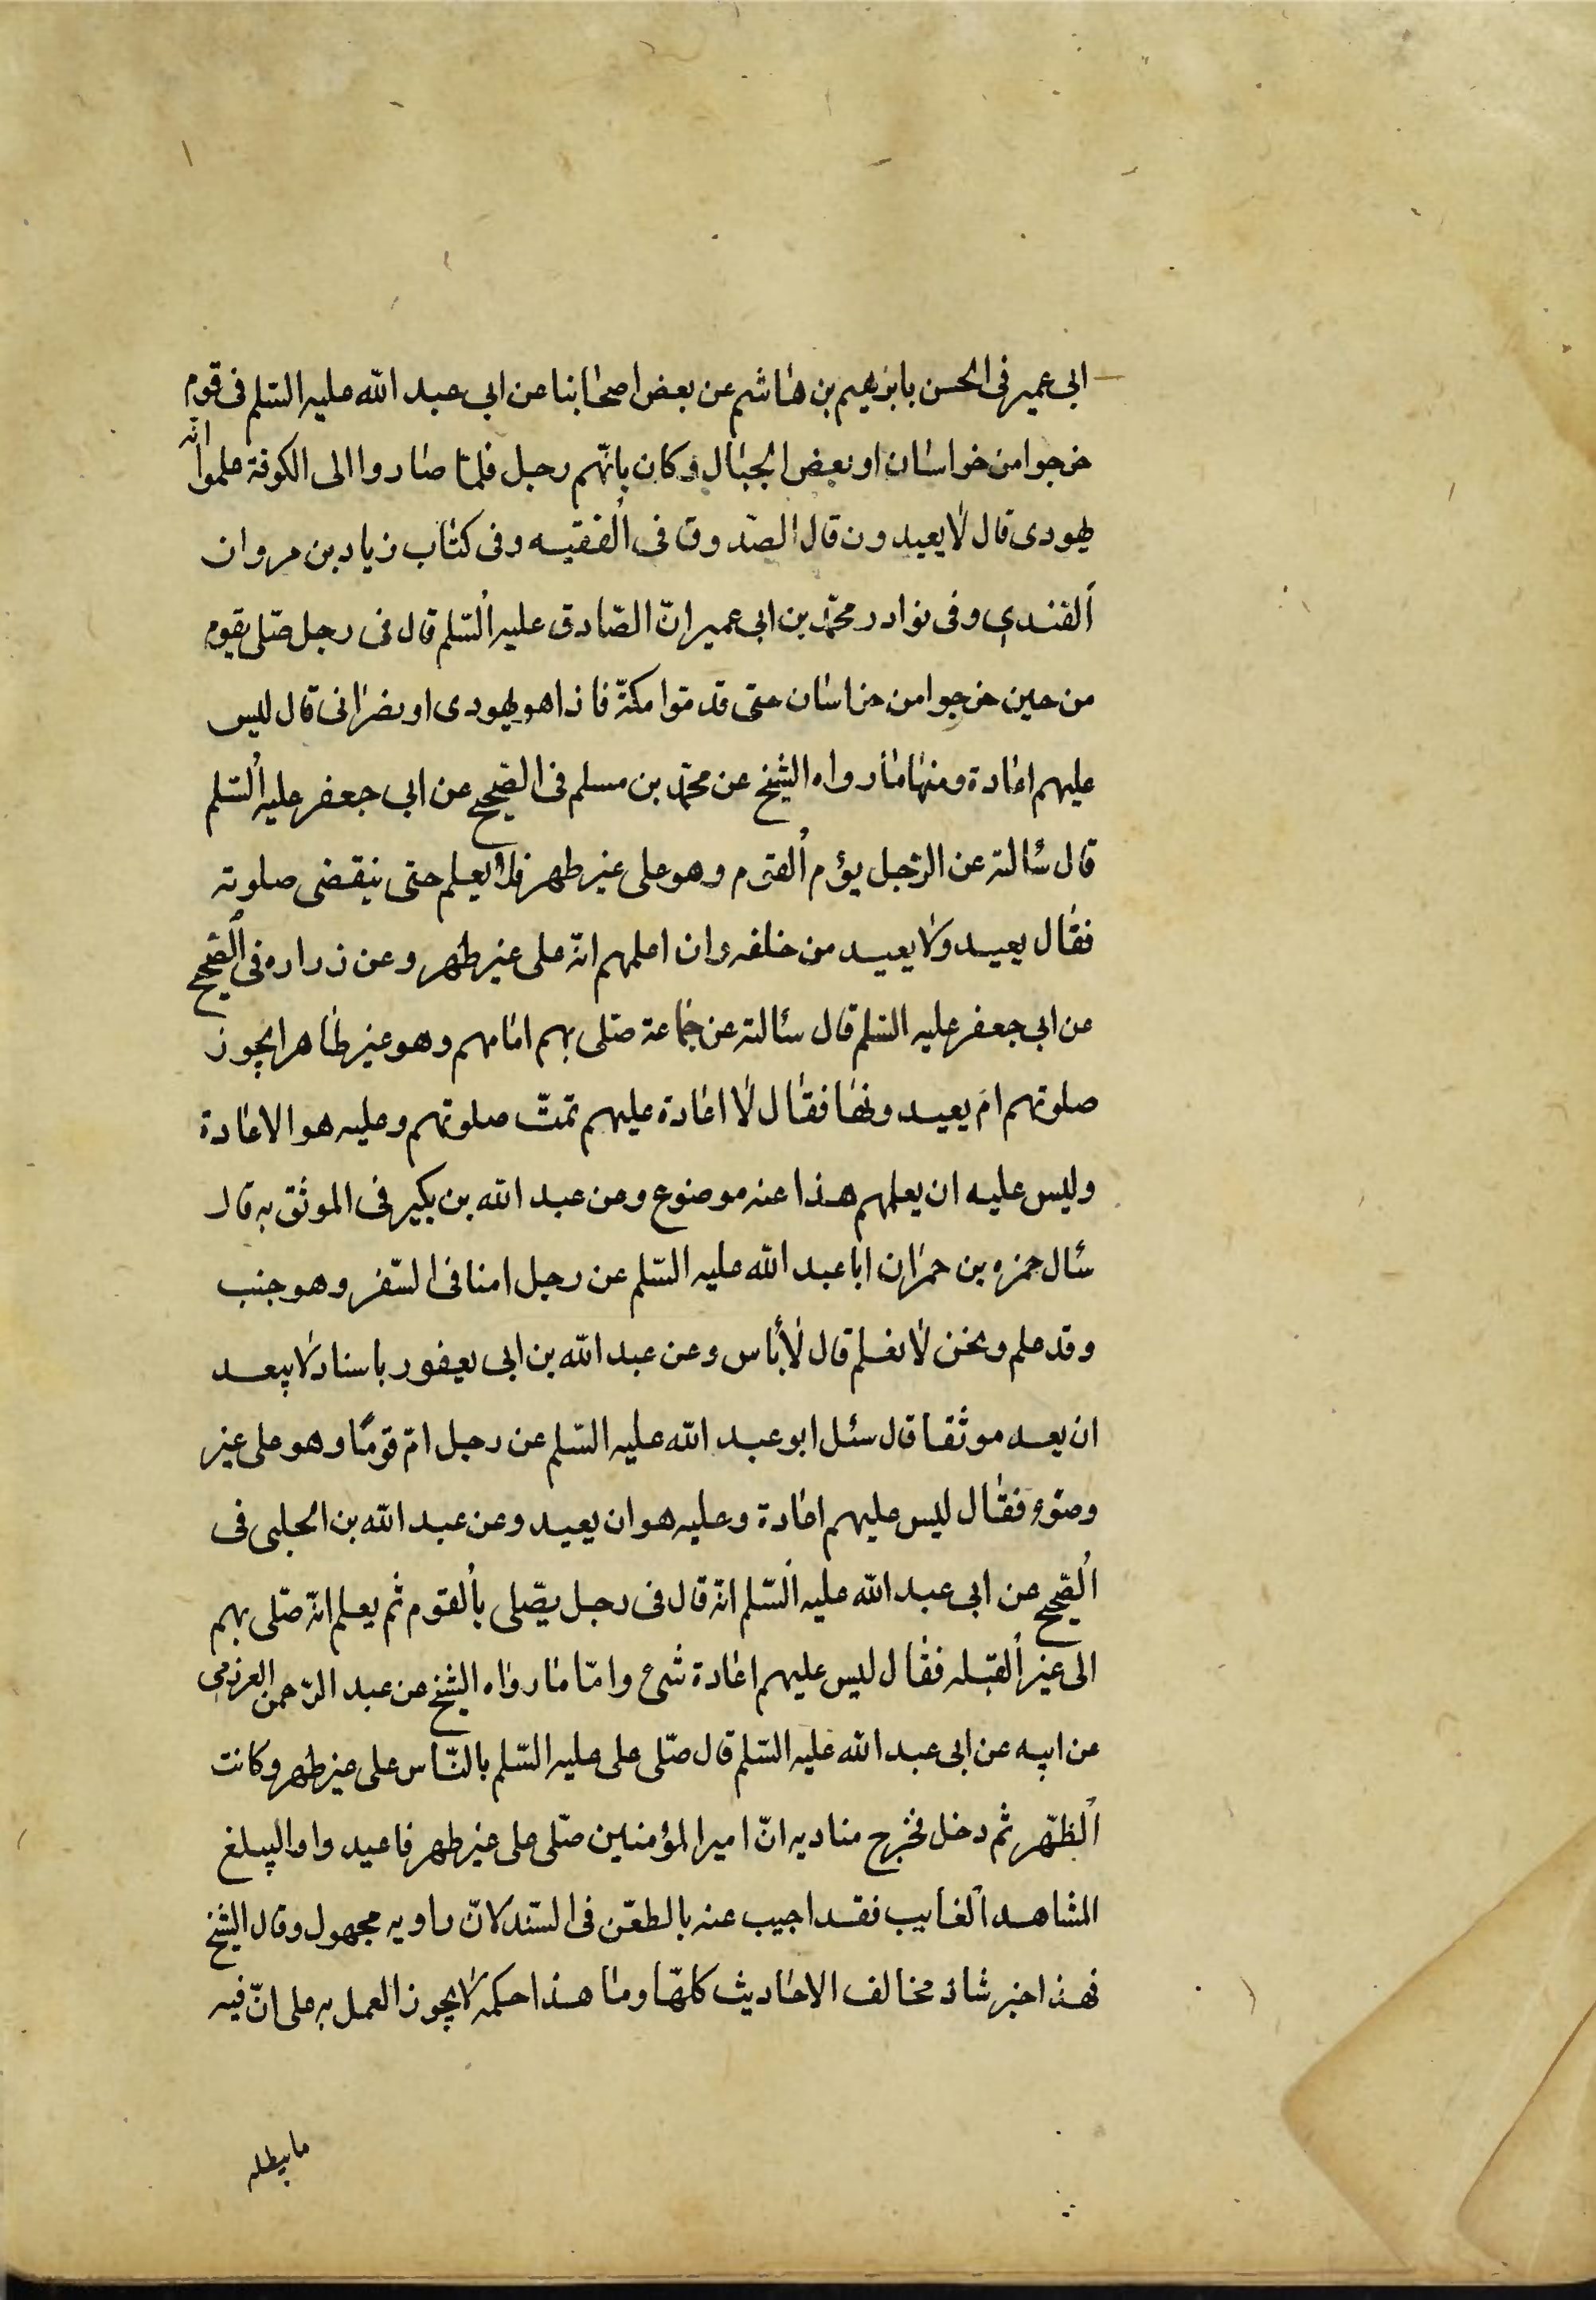 ابى عمير فى الحسن بابرهيم بن هاشم عن بعض اصحابنا عن ابى عبد الله عليه السّلم فى قوم
خرجوا من خراسان او بعض الجبال وكان يامّهم رجل فلمّا صاروا الى الكوفة علموا انّه
يهودى قال لا يعيدون قال الصّدوق فى الفقيه وفى كتاب زياد بن مروان
القندى وفى نوادر محمّد بن ابى عمير انّ الصّادق عليه السّلم قال فى رجل صلّى بقوم
من حين خرجوا من خراسان حتى قدموا مكّة فاذا هو يهودى او نصرانى قال ليس
عليهم اعادة ومنها ما رواه الشيخ عن محمّد بن مسلم فى الصّحيح عن ابى جعفر عليه السّلم
قال سئالته عن الرّجل يؤم القوم وهو على غير طهر فلا يعلم حتى ينقضى صلوته
فقال يعيد ولا يعيد من خلفه وان اعلمهم انّه على غير طهر وعن زراره فى الصّحيح
عن ابى جعفر عليه السّلم قال سئالته عن جماعة صلّى بهم امامهم وهو غير طاهر ايجوز
صلوتهم ام يعيدونها فقال لا اعادة عليهم تمّت صلوتهم وعليه هو الاعادة
وليس عليه ان يعلمهم هذا عنه موضوع وعن عبد الله بن بكير فى الموثق به قال
سئال حمزه بن حمران ابا عبد الله عليه السّلم عن رجل امنا فى السّفر وهو جنب
وقد علم ونحن لا نعلم قال لا بأس وعن عبد الله بن ابى يعفور باسناد لا يبعد
ان يعد موثقا قال سئل ابو عبد الله عليه السّلم عن رجل امّ قومًا وهو على غير
وضوء فقال ليس عليهم اعادة وعليه هو ان يعيد وعن عبد الله بن الحلبى فى
الصّحيح عن ابى عبد الله عليه السّلم انّه قال فى رجل يصّلى بالقوم ثم يعلم انّه صلّى بهم
الى غير القبله فقال ليس عليهم اعادة شىء وامّا ما رواه الشيخ عن عبد الرّحمن العرزمى
عن ابيه عن ابى عبد الله عليه السّلم قال صلّى على عليه السّلم بالنّاس على غير طهر وكانت
الظّهر ثم دخل فخرج مناديه انّ امير المؤمنين صلّى على غير طهر فاعيدوا واليبلغ
المشاهد الغايب فقد اجيب عنه بالطعن فى السّند لانّ راويه مجهول وقال الشيخ
فهذا خبر شاذ مخالف الاحاديث كلهّا وما هذا حكمه لا يجوز العمل به على انّ فيه
ما يبطله